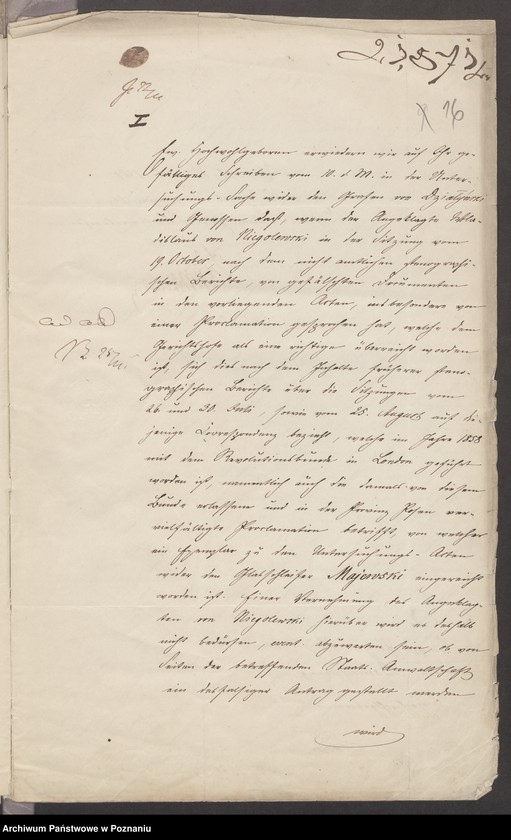 I
16
Ew. Hochwohlgeboren erwiedern wir auf Ihr ge-
fälliges Schreiben vom 10. d. M. in der Unter-
suchungs-Sache wider den Grafen von Dzialynski
und Genossen daß, wenn der Angeklagte Wla-
dislaus von Niegolewski in der Sitzung vom
19. October, nach dem nicht amtlichen stenographi-
schen Berichte, von gefälschten Documenten
in den vorliegenden Acten, insbesondere von
einer Proclamation gesprochen hat, welche dem
Gerichtshofe als eine richtige überreicht worden
ist, sich dies nach dem Inhalte früherer steno-
graphischen Berichte über die Sitzungen vom
26. und 30. Juli, sowie vom 25. August auf die-
jenige Correspondenz bezieht, welche im Jahre 1858
mit dem Revolutionsbunde in London geführt
worden ist, namentlich auch die damals von diesem
Bunde erlassene und in der Provinz Posen ver-
vielfältigte Proclamation betrifft, von welcher
ein Exemplar zu den Untersuchungs-Acten
wider den Glasschleifer Majewski eingereicht
worden ist. Einer Vernehmung des Angeklag-
ten von Niegolewski hierüber wird es deshalb
nicht bedürfen, event. abzuwarten sein, ob von
Seiten der betreffenden Staats-Anwaltschaft
ein desfallsiger Antrag gestellt werden
wird
Archiwum Państwowe w Poznaniu